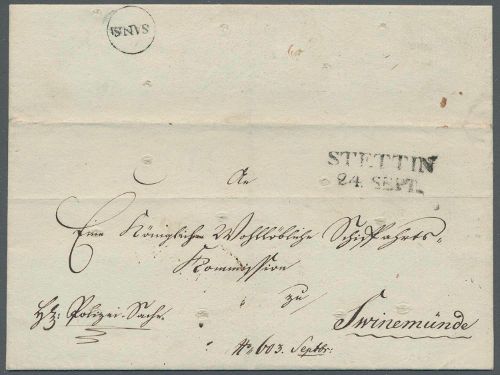 STETTIN
24 SEPT.
An
Eine Königliche Wohllöbliche Schiffahrts=
Kommission
zu
Swinemünde
Polizei-Sache.
No 603. Septbr: